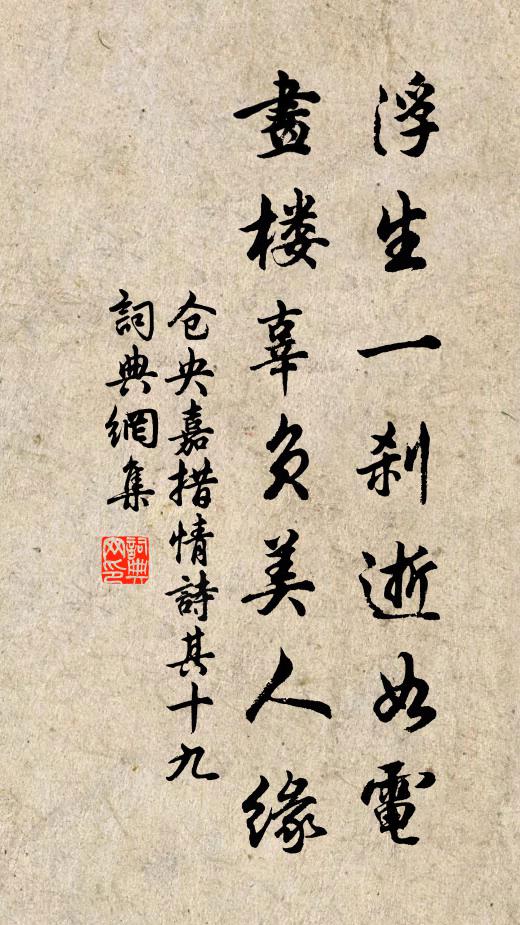 浮生一刹逝如電
畫楼辜负美人緣
仓央嘉措情詩其十九
詞典網集
詞典网印